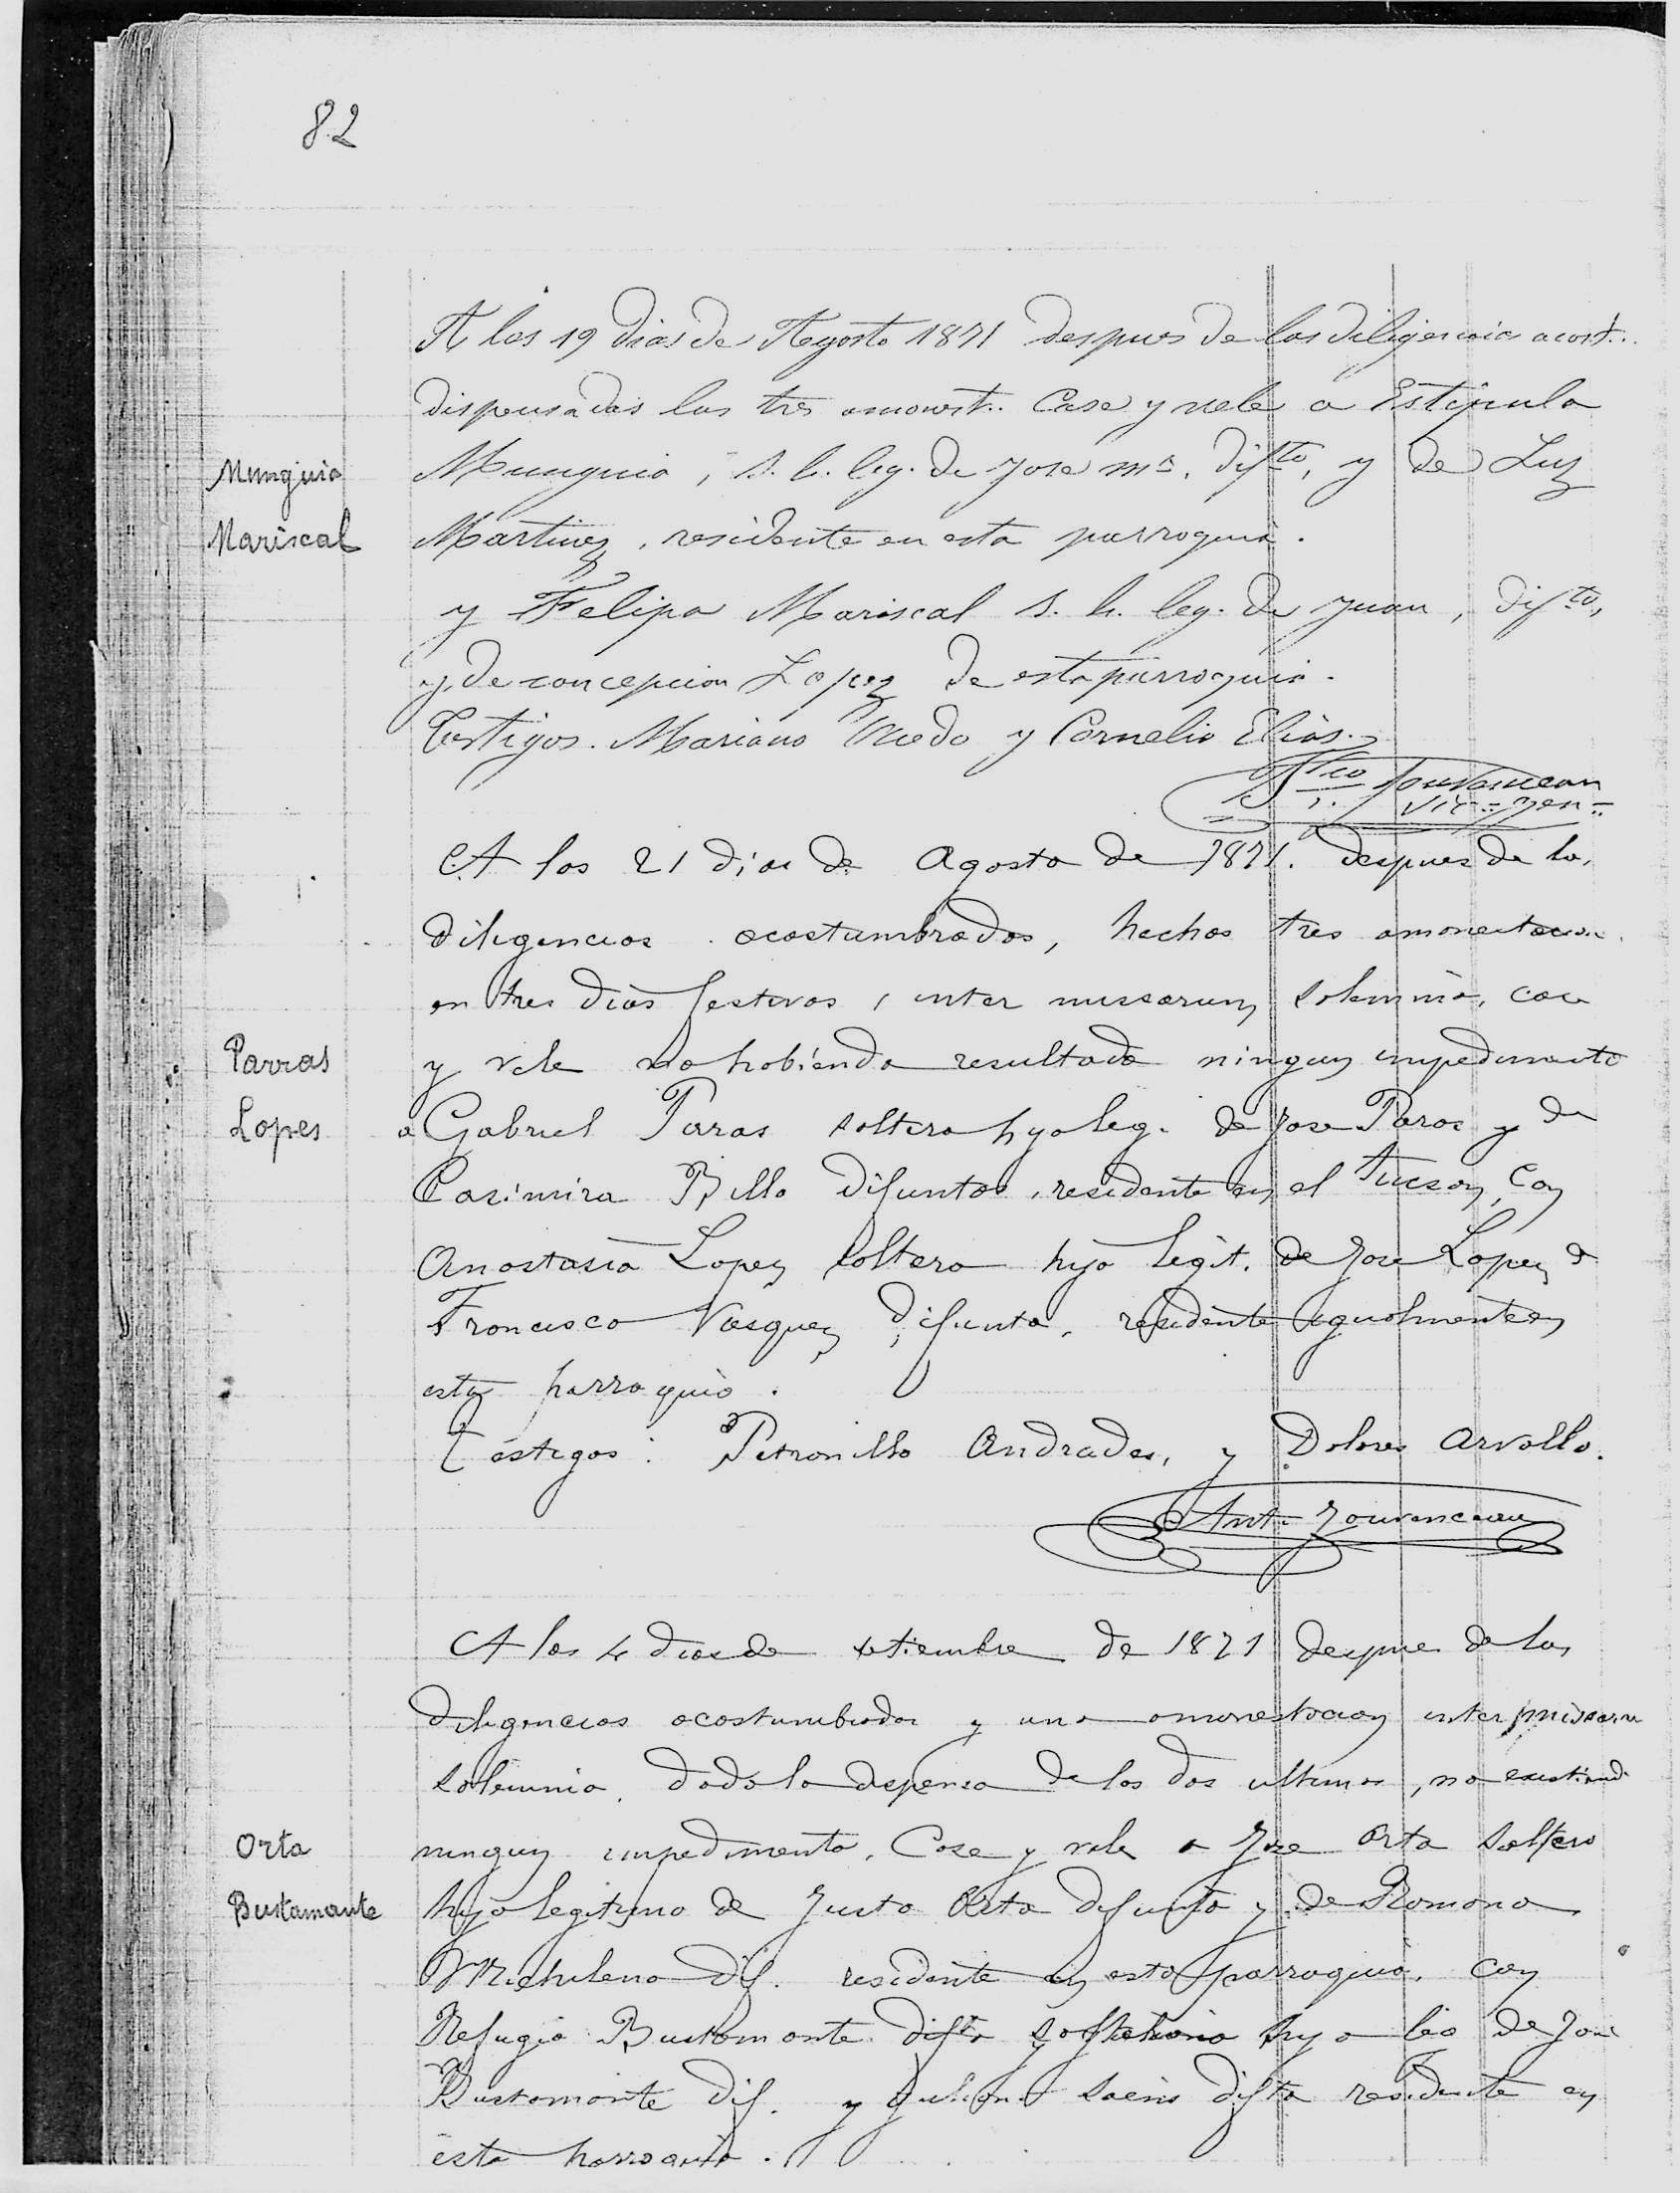 82
A los 19 dias de Agosto 1871 despues de las diligencias acost..
dispensadas las tres amonest.. Case y vele a Estipula
Munguia
Munguia, s. h. leg. de Jose Ma. difto, y de Luz
Mariscal
Martinez, residente en esta parroquia.
y Felipa Mariscal s. h. leg. de Juan, difto,
y de concepcion Lopez de esta parroquia.
Testigos. Mariano y Cornelio Elias.
A los 21 dias de Agosto de 1871. despues de las
diligencias acostumbradas, hechas tres amonestacion
en tres dias festivos, inter missarum solemnia, case
Parras
y vele no habiendo resultado ningun impedimento
Lopes
a Gabriel Paras soltero hijo leg. de Jose Paras y de
Casimira Bello difuntos, residente en el Tucson, con
Anastasia Lopez soltera hija legit. de Jose Lopez &
Francisca Vasquez difunta, residente igualmente en
esta parroquia.
Testigos: Petronillo Andrades, y Dolores Arvallo.
Ant. Jouvenceau
A los 4 dias de setiembre de 1871 despues de las
diligencias acostumbradas y una amonestacion inter missarum
solemnia, dada la dispensa de las dos ultimas, no existiendo
Orta
ningun impedimento, Case y vele a Jose Orta soltero
Bustamante
hijo legitimo de Justo Orta difunto y de Romona
Michelena dif. residente en esta parroquia, con
Refugia Bustamonte difta hija leg de Jose
Bustamonte dif. y saens difta residente en
esta parroquia.